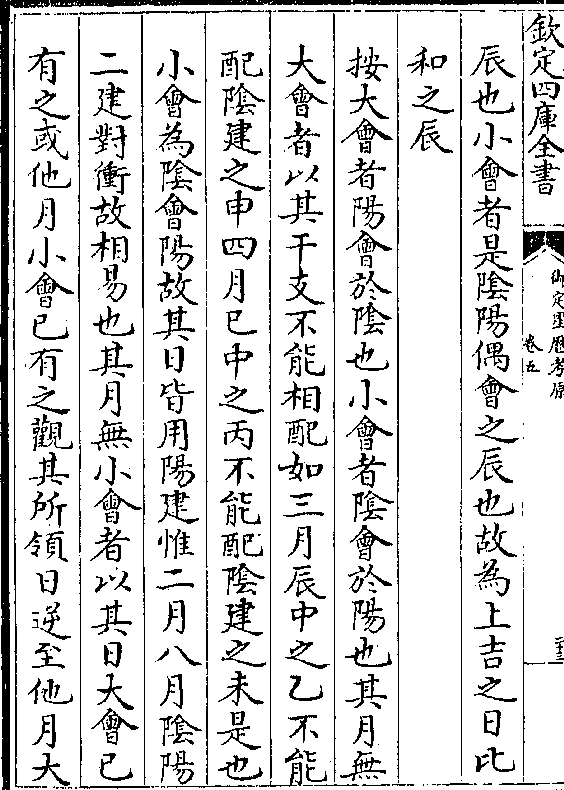 欽定四庫全書
御定星歷考原
卷五
二十三
辰也小會者是陰陽偶會之辰也故為上吉之日比
和之辰
按大會者陽會於陰也小會者陰會於陽也其月無
大會者以其干支不能相配如三月辰中之乙不能
配陰建之申四月巳中之丙不能配陰建之未是也
小會為陰會陽故其日皆用陽建惟二月八月陰陽
二建對衝故相易也其月無小會者以其日大會已
有之或他月小會已有之觀其所領日逆至他月大